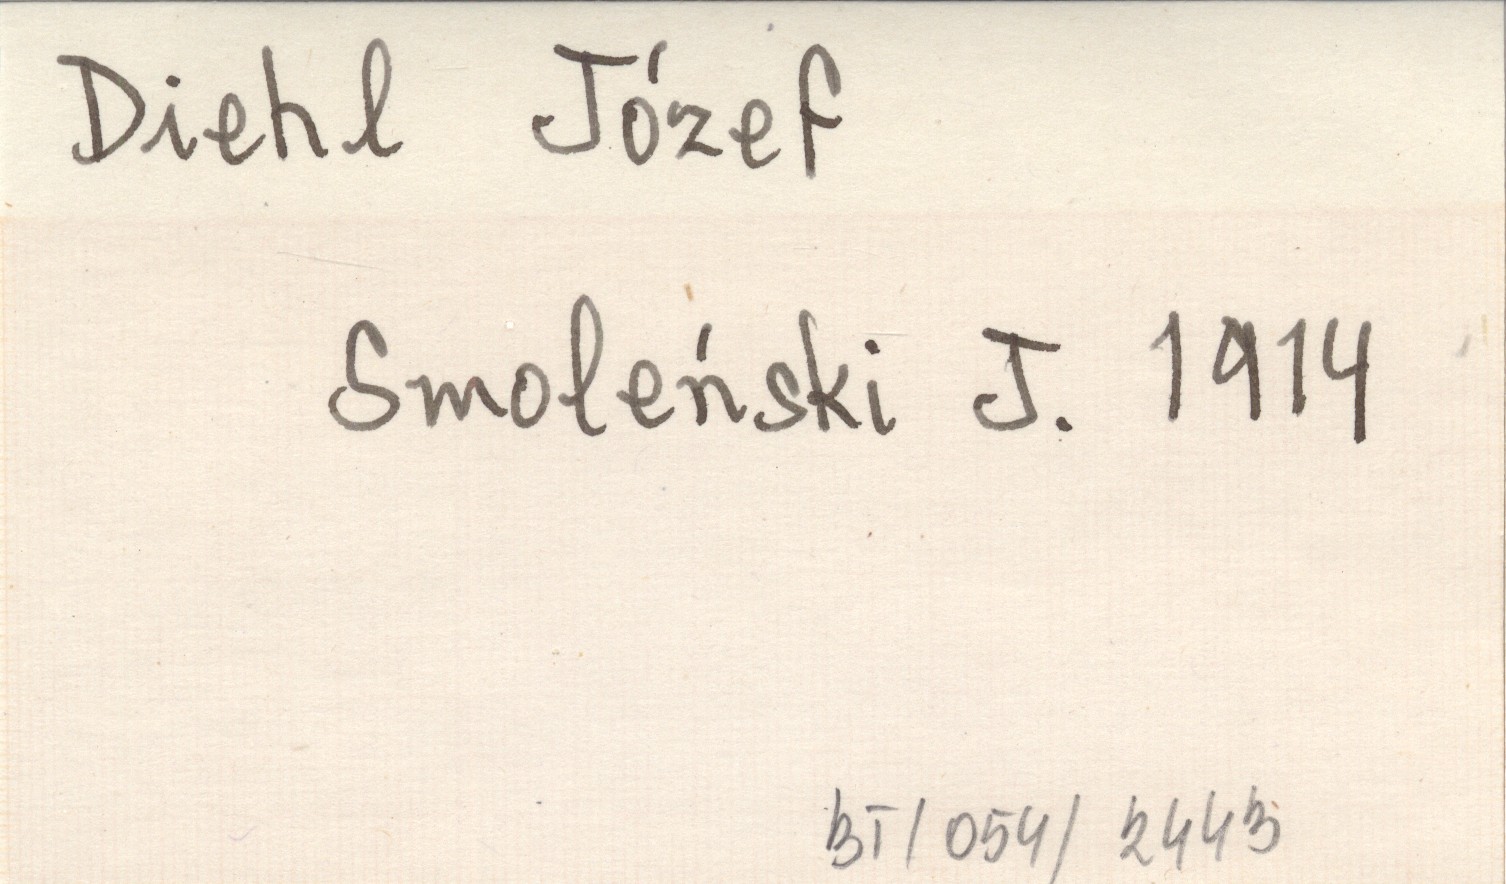 Diehl Józef
Smoleński J. 1914
BT/054/2443